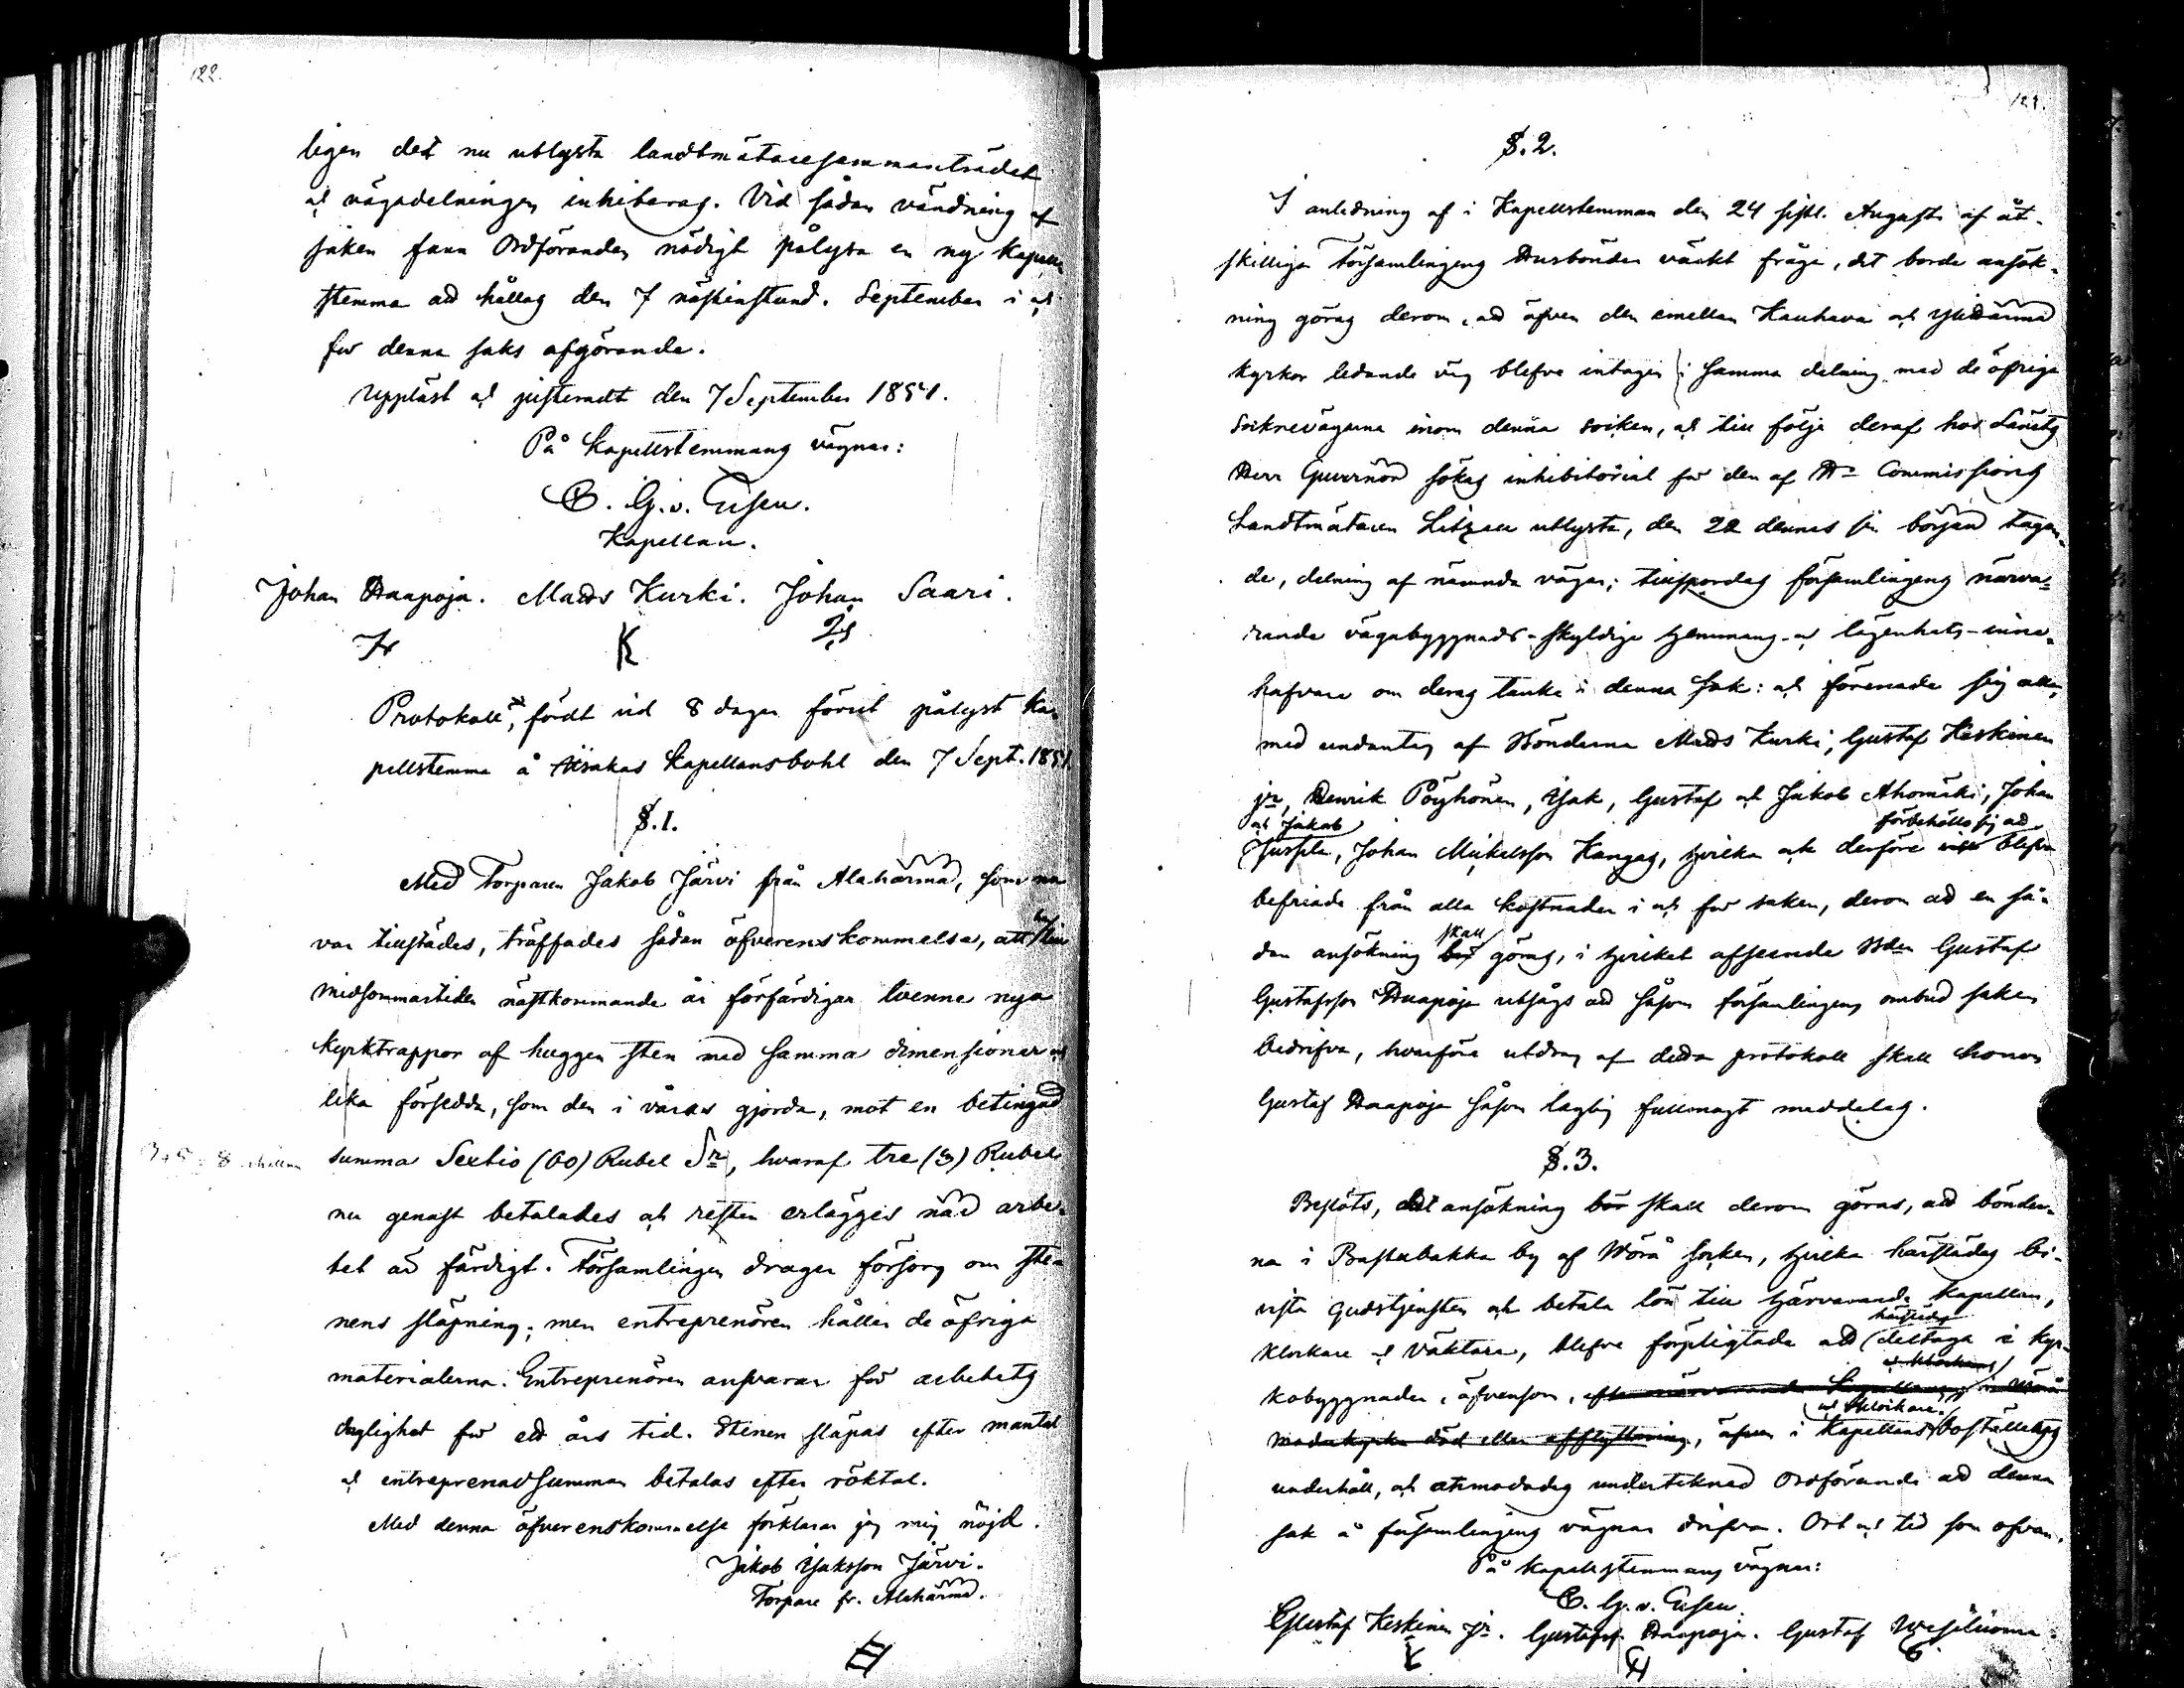 122.
ligen det nu utlysta landtmätaresammanträdet
och vägadelningen inhiberas. Vid sådan vändning af
saken fann Ordföranden nödigt pålysa en ny Kapell
stemma att hållas den 7 nästinstund. September i och
för denna saks afgörande.
Uppläst och justeradt den 7 September 1851.
På Kapellstemmans vägnar:
C. G. v. Essen.
Kapellan.
Johan Haapoja. Matts Kurki. Johan Saari.
Protokoll, fördt vid 8 dagar förut pålyst Ka-
pellstemma å Kapellansbohl den 7 Sept. 1851
§. 1.
Med Torparen Jakob Järvi från Alahärmä, som nu
var tillstädes, träffades sådan öfverenskommelse, att han till
midsommartiden nästkommande år förfärdigar tvenne nya
kyrktrappor af huggen sten med samma dimensioner och
lika försedda, som den i våras gjorda, mot en betingad
summa Sextio (60) Rubel Sr, hvaraf tre (3) Rubel
nu genast betalades och resten erlägges när arbe-
tet är färdigt. Församlingen drager försorg om ste-
nens släpning; men entreprenören håller de öfriga
materialerna. Entreprenören ansvarar för arbetets
duglighet för ett års tid. Stenen släpas efter mantal
och entreprenadsumman betalas efter röktal.
Med denna öfverenskommelse förklarar jag mig nöjd.
Jakob Isaksson Järvi.
Torpare fr. Alahärmä.
§. 2.
I anledning af i Kapellstemman den 24 sistl. Augusti af åt-
skilliga Församlingens Husbönder väckt fråga, det borde ansök-
ning göras derom, att äfven den emellan Kauhava och Ylihärmä
kyrkor ledande väg blefve intagen i samma delning med de öfriga
socknevägarna inom denna socken, och till följe deraf hos Länets
Herr Guvernör sökas inhibitorial för den af Hr Commissions
Landtmätaren Litzen utlysta, den 22 dennes sin början tagan-
de, delning af nämnda vägar; tillspordes församlingens närva-
rande vägabyggnads-skyldige hemmans- och lägenhets-inne-
hafvare om deras tanke i denna sak: och förenade sig alla,
med undantag af Bönderna Matts Kurki, Gustaf Keskinen
jr, Henrik Pöyhönen, Isak, Gustaf och Jakob Ahomäki, Johan
och Jakob Jussila, Johan Mickelsson Kangas, hvilka ock derföre förbehöllo sig att blifva
befriade från alla kostnader i och för saken, derom att en så-
dan ansökning skall göras, i hvilket afseende Bden Gustaf
Gustafsson Haapoja utsågs att såsom församlingens ombud saken
bedrifva, hvarföre utdrag af detta protokoll skall honom
Gustaf Haapoja såsom laglig fullmagt meddelas.
§. 3.
Beslöts, att ansökning bör skall derom göras, att bönder-
na i Bastubakka by af Wörå socken, hvilka härstädes be-
vista gudstjensten och betala lön till härvarande Kapellan,
Klockare och Väktare, blefve förpligtade att härstädes deltaga i kyr-
kobyggnader, äfvensom, efter närvarande Kapellans och klockares i Wörå
moderkyrka död eller afflyttning, äfven i Kapellans och Klockare boställets
underhåll, och anmodades undertecknad Ordförande att denna
sak å församlingens vägnar drifva. Ort och tid som ofvan.
På Kapellstemmans vägnar:
C. G. v. Essen.
Gustaf Keskinen Jr. Gustafsf. Haapoja. Gustaf